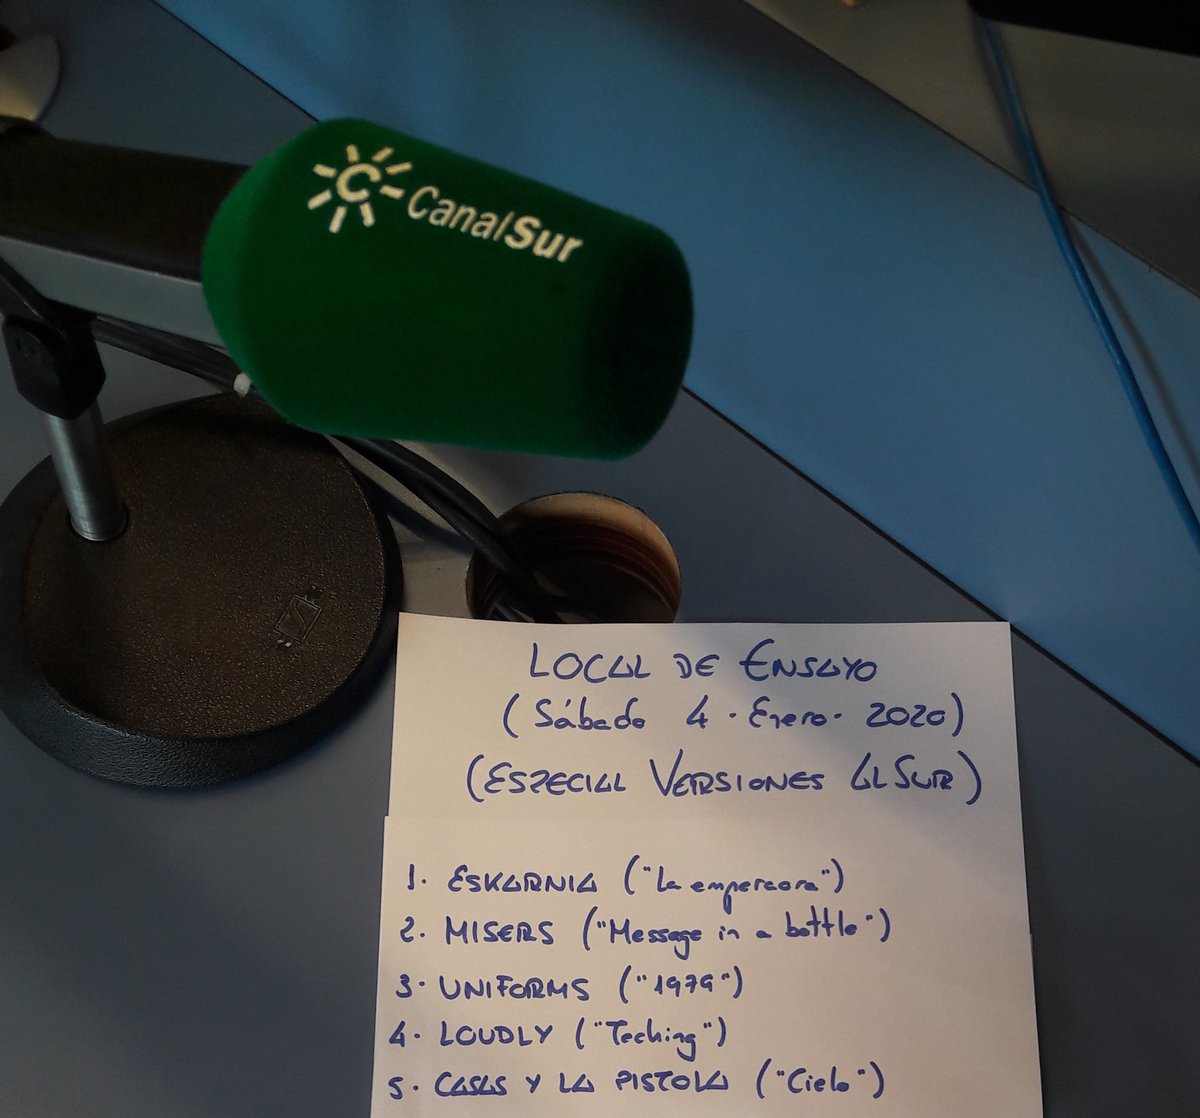 CanalSur
LOCAL DE ENSAYO
(Sábado 4 · Enero · 2020)
(ESPECIAL VERSIONES AL SUR)
1. ESKARNIA ("La emperaora")
2. MISERS ("Message in a bottle")
3. UNIFORMS ("1979")
4. LOUDLY ("Teching")
5. CASAS Y LA PISTOLA ("Cielo")